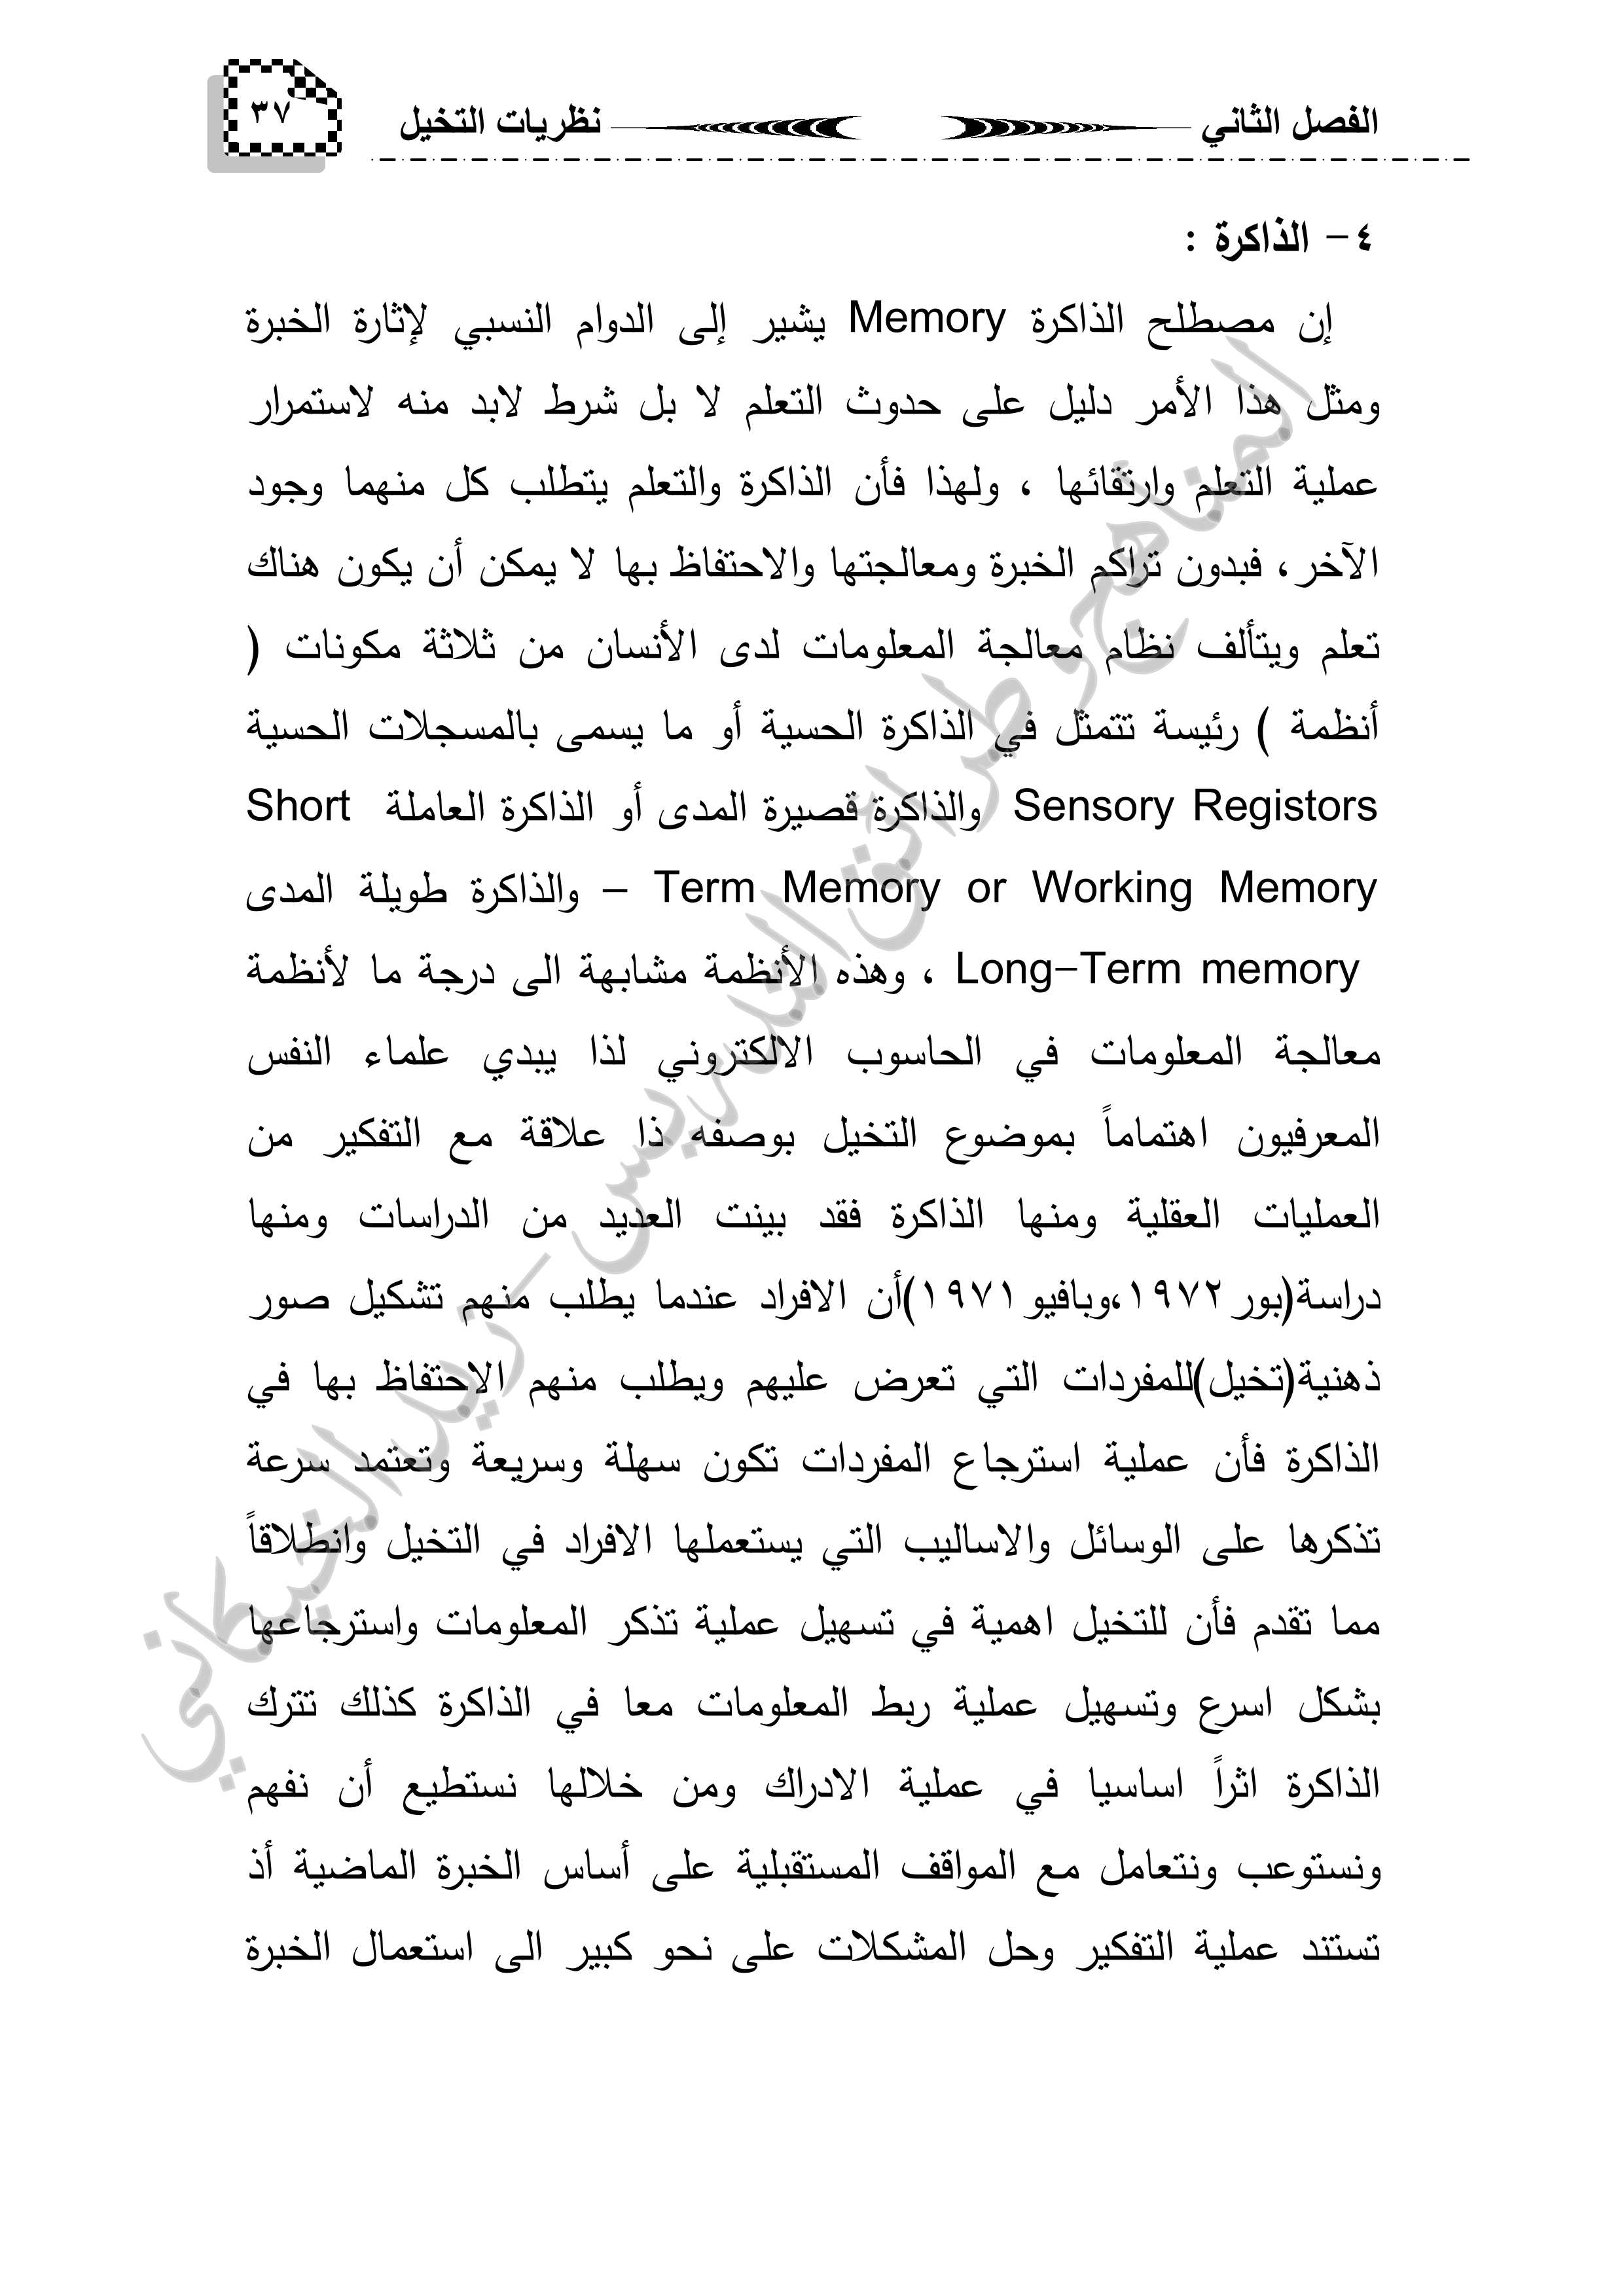 الفصل الثاني نظريات التخيل ٣٧
٤- الذاكرة :
إن مصطلح الذاكرة Memory يشير إلى الدوام النسبي لإثارة الخبرة
ومثل هذا الأمر دليل على حدوث التعلم لا بل شرط لابد منه لاستمرار
عملية التعلم وارتقائها ، ولهذا فأن الذاكرة والتعلم يتطلب كل منهما وجود
الآخر ، فبدون تراكم الخبرة ومعالجتها والاحتفاظ بها لا يمكن أن يكون هناك
تعلم ويتألف نظام معالجة المعلومات لدى الأنسان من ثلاثة مكونات (
أنظمة ) رئيسة تتمثل في الذاكرة الحسية أو ما يسمى بالمسجلات الحسية
Sensory Registors والذاكرة قصيرة المدى أو الذاكرة العاملة Short
Term Memory or Working Memory – والذاكرة طويلة المدى
Long-Term memory ، وهذه الأنظمة مشابهة الى درجة ما لأنظمة
معالجة المعلومات في الحاسوب الالكتروني لذا يبدي علماء النفس
المعرفيون اهتماماً بموضوع التخيل بوصفه ذا علاقة مع التفكير من
العمليات العقلية ومنها الذاكرة فقد بينت العديد من الدراسات ومنها
دراسة(بور ١٩٧٢،وبافيو ١٩٧١)أن الافراد عندما يطلب منهم تشكيل صور
ذهنية(تخيل)للمفردات التي تعرض عليهم ويطلب منهم الاحتفاظ بها في
الذاكرة فأن عملية استرجاع المفردات تكون سهلة وسريعة وتعتمد سرعة
تذكرها على الوسائل والاساليب التي يستعملها الافراد في التخيل وانطلاقاً
مما تقدم فأن للتخيل اهمية في تسهيل عملية تذكر المعلومات واسترجاعها
بشكل اسرع وتسهيل عملية ربط المعلومات معا في الذاكرة كذلك تترك
الذاكرة اثراً اساسيا في عملية الادراك ومن خلالها نستطيع أن نفهم
ونستوعب ونتعامل مع المواقف المستقبلية على أساس الخبرة الماضية أذ
تستند عملية التفكير وحل المشكلات على نحو كبير الى استعمال الخبرة
المناهج وطرائق التدريس - زيد الخيكاني